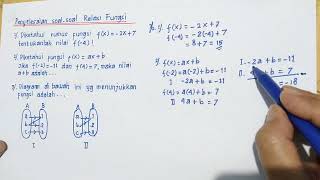 Penyelesaian soal-soal Relasi Fungsi
1) Diketahui rumus fungsi f(x) = -2x+7
tentukanlah nilai f(-4)!
2) Diketahui fungsi f(x) = ax+b
jika f(-2) = -11 dan f(4) = 7, maka nilai
a+b adalah...
3) Diagram di bawah ini yg menunjukkan
fungsi adalah...
I
II
1) f(x) = -2x+7
f(-4) = -2(-4)+7
= 8+7 = 15
2) f(x) = ax+b
f(-2) = a(-2)+b = -11
I -2a+b = -11
f(4) = a(4)+b = 7
II 4a+b = 7
I. -2a+b = -11
II. +b = 7
= -18